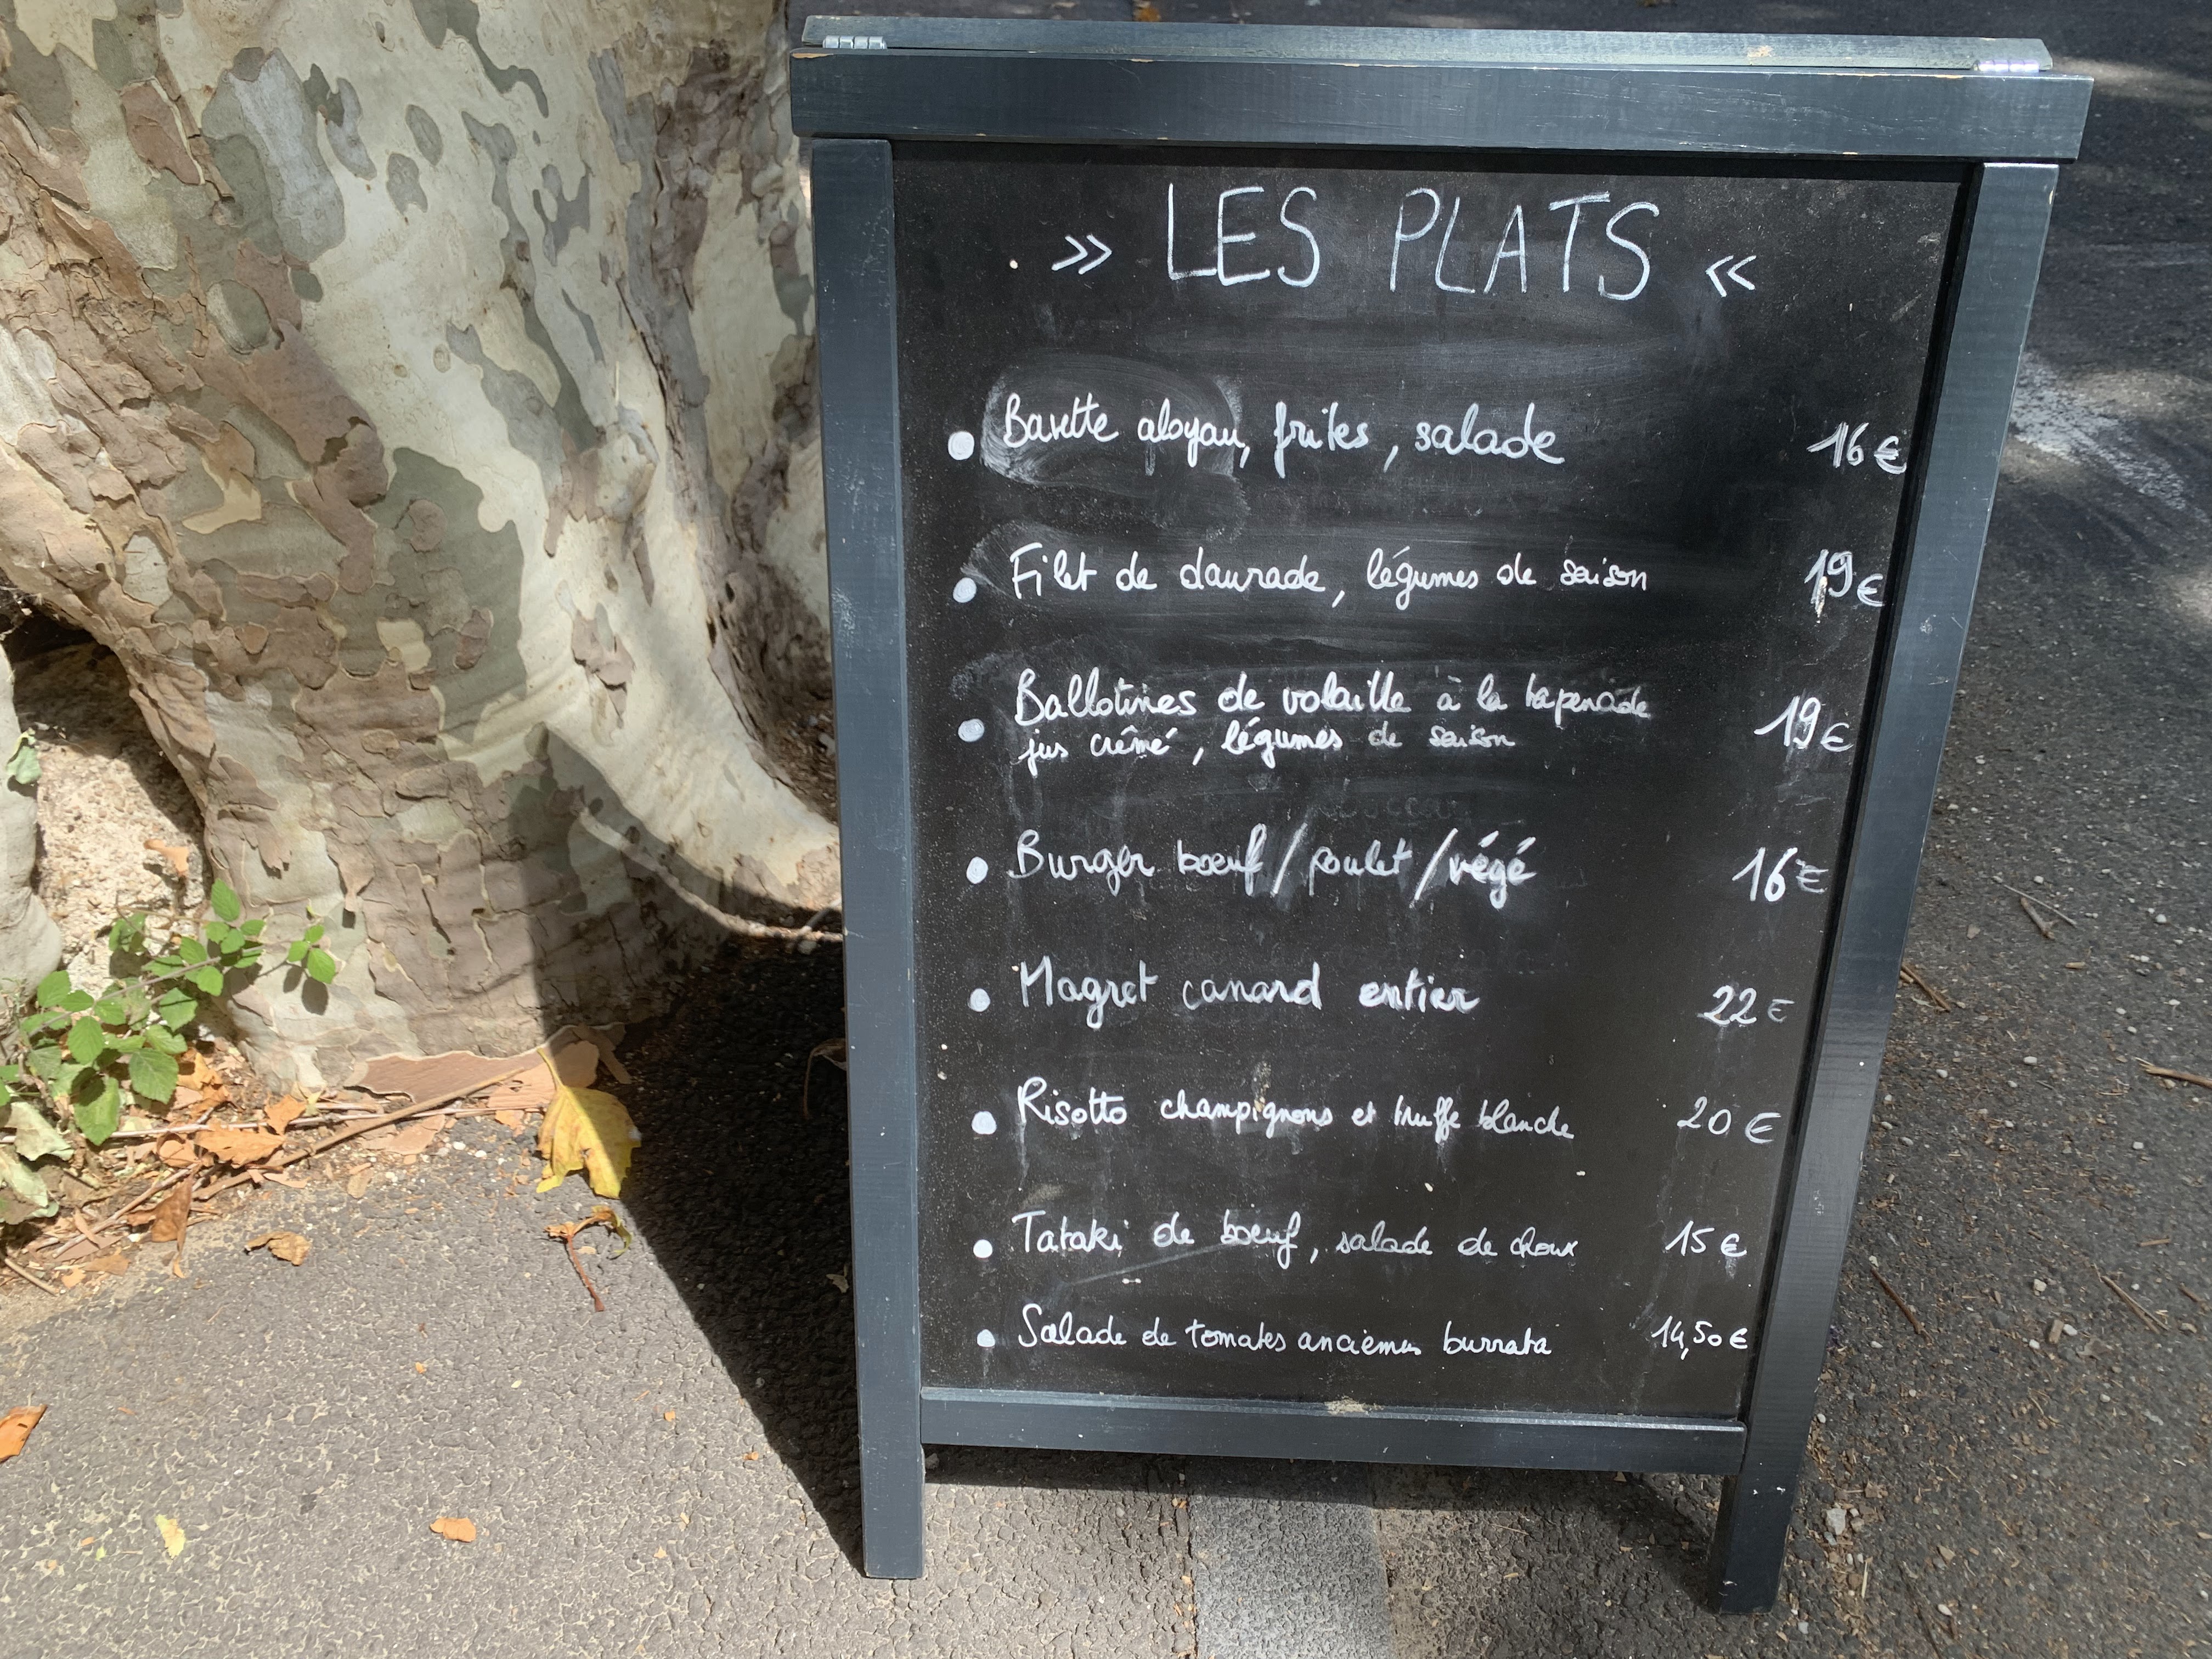 >> LES PLATS <<
• Bavette aloyau, frites, salade 16€
• Filet de daurade, légumes de saison 19€
• Ballotines de volaille à la tapenade 19€
jus crémé, légumes de saison
• Burger boeuf/poulet/végé 16€
• Magret canard entier 22€
• Risotto champignons et truffe blanche 20€
• Tataki de boeuf, salade de choux 15€
• Salade de tomates anciennes burrata 14,50€